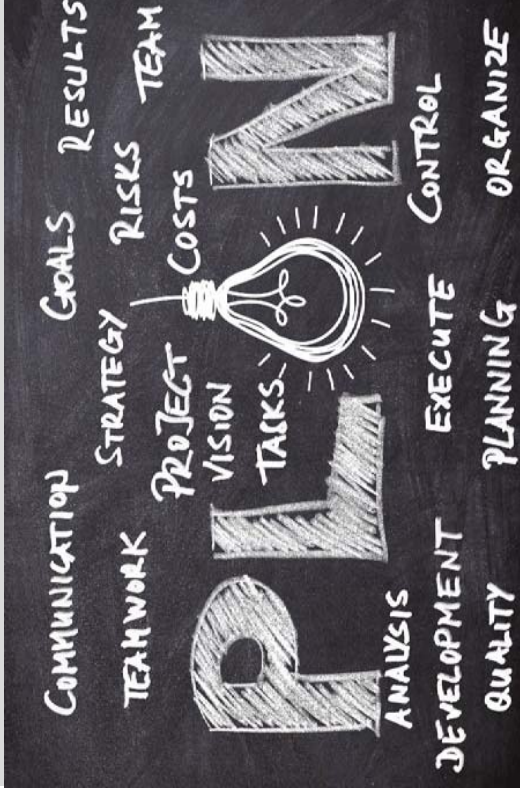 COMMUNICATION GOALS RESULTS
TEAMWORK STRATEGY RISKS TEAM
PROJECT COSTS
VISION
TASKS
PL N
ANALYSIS CONTROL
DEVELOPMENT EXECUTE
QUALITY PLANNING ORGANIZE